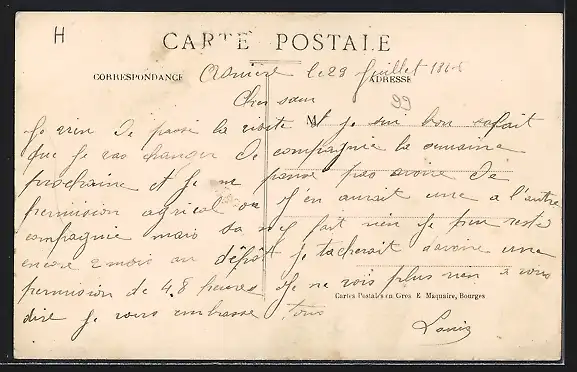 H
CARTE POSTALE
CORRESPONDANCE
ADRESSE
Asnière le 29 Juillet
99
Cher sœur
M
Je vien de passé la visite et je sui bon
que je vas changer de compagnie la semaine
prochaine et je ne pense pas avoir de
permision agricol on m'en aurait une a l'autre
compagnie mais sa ne fait rien je peu resté
encore 2 mois au dépôt je tacherait d'avoir une
permision de 48 heures Je ne vois plus rien à vous
Cartes Postales en Gros E. Maquaire, Bourges
dire je vous embrasse tous
Louis